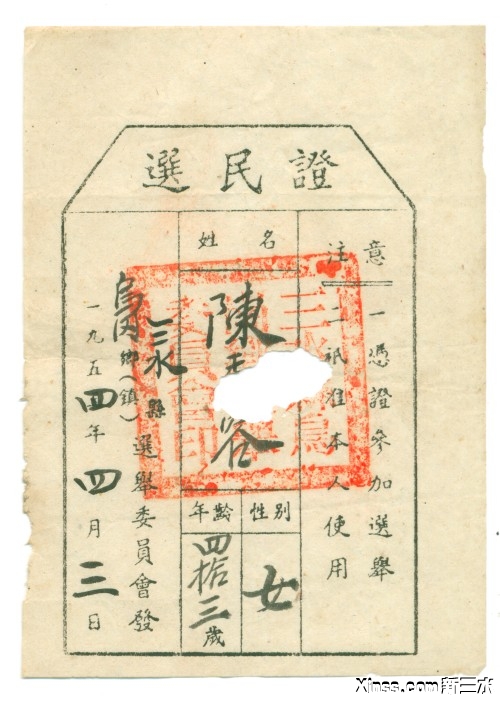 選民證
注意
一憑證參加選舉
二祇准本人使用
姓名
陳
性別
女
年齡
四拾三歲
三水縣
鄉(鎮)選舉委員會發
一九五四年四月三日
Xinss.com新三水